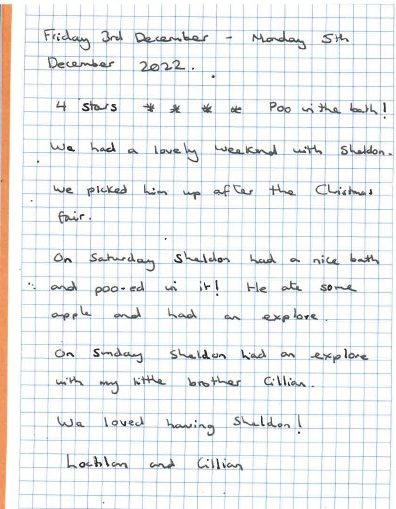 Friday 3rd December - Monday 5th
December 2022.
4 stars * * * * Poo in the bath!
We had a lovely weekend with Sheldon.
We picked him up after the Chistmas
fair.
On Saturday Sheldon had a nice bath
and poo-ed in it! He ate some
apple and had an explore.
On Sunday Sheldon had an explore
with my little brother Cillian.
We loved having Sheldon!
Lochlan and Cillian